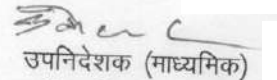 उपनिदेशक (माध्यमिक)